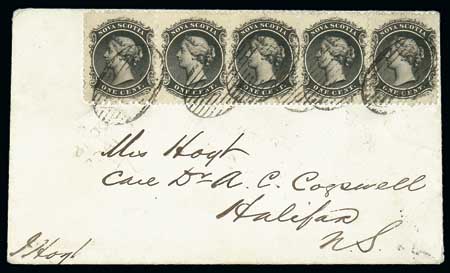 NOVA SCOTIA NOVA SCOTIA NOVA SCOTIA NOVA SCOTIA NOVA SCOTIA
ONE CENT ONE CENT ONE CENT ONE CENT ONE CENT
Mrs Hoyt
Care Dr A. C. Cogswell
Halifax
N.S.
J Hoyt